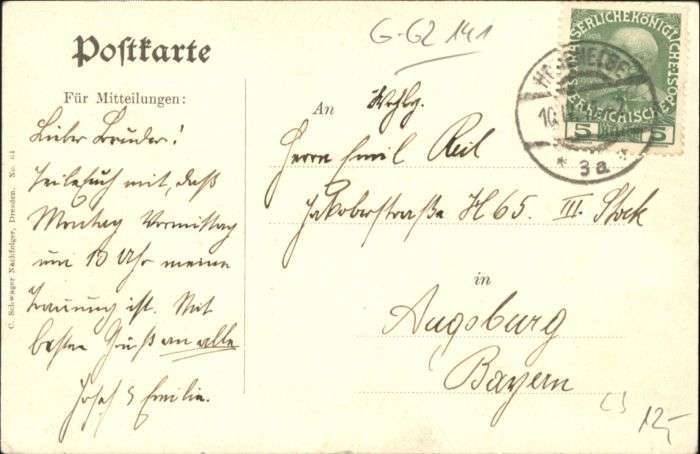 G-GZ 141
Postkarte
Für Mitteilungen:
Lieber Bruder!
Teile euch mit, daß
Montag Vormittag
um 10 Uhr meine
Trauung ist. Mit
besten Gruß an alle
Josef & Emilie.
C. Schwager Nachfolger, Dresden. No. 64
An Wohlg.
Herrn Emil Reil
Jakoberstraße H 65. III. Stock
in
Augsburg
Bayern
12,-
HOHENELBE
3a
5 5